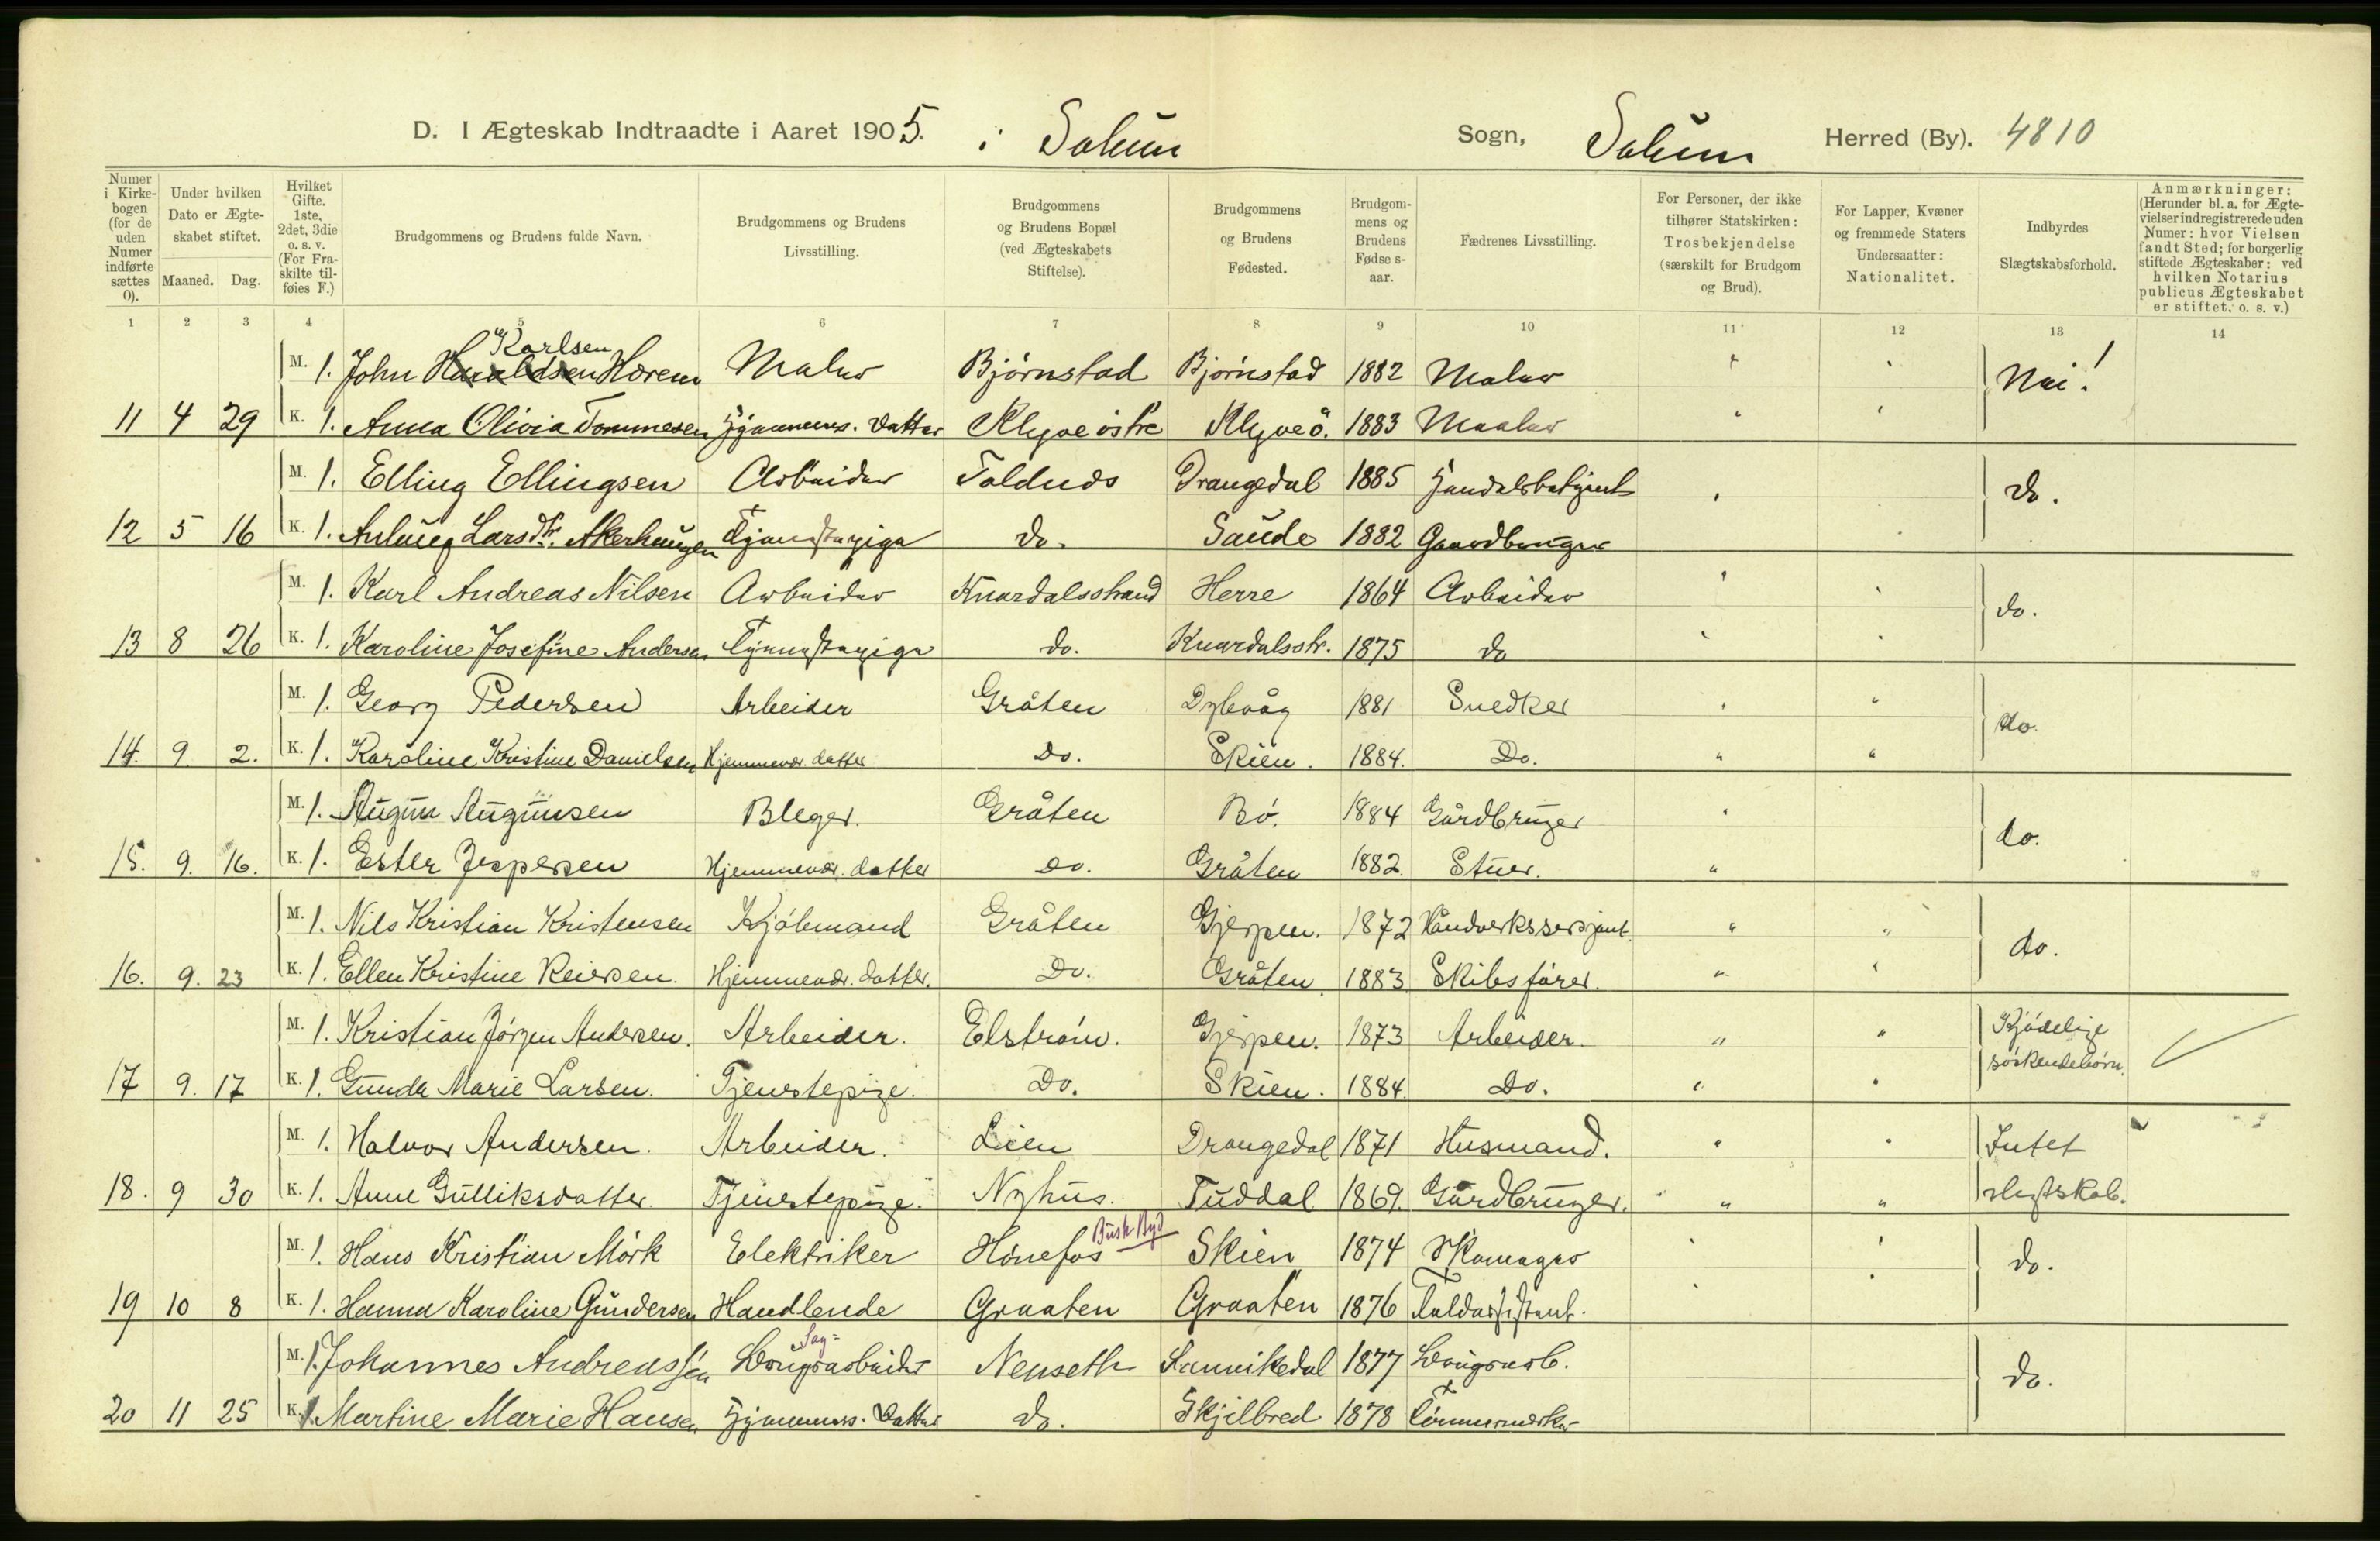 D. I Ægteskab Indtraadte i Aaret 1905. i Solum Sogn, Solum Herred (By). 4810
Numer i Kirkebogen (for de uden Numer indførte sættes 0).
Under hvilken Dato er Ægteskabet stiftet.
Maaned. Dag.
Hvilket Gifte. 1ste, 2det, 3die o. s. v. (For Fraskilte tilføies F.)
Brudgommens og Brudens fulde Navn.
Brudgommens og Brudens Livsstilling.
Brudgommens og Brudens Bopæl (ved Ægteskabets Stiftelse).
Brudgommens og Brudens Fødested.
Brudgommens og Brudens Fødse s-aar.
Fædrenes Livsstilling.
For Personer, der ikke tilhører Statskirken: Trosbekjendelse (særskilt for Brudgom og Brud).
For Lapper, Kvæner og fremmede Staters Undersaatter: Nationalitet.
Indbyrdes Slægtskabsforhold.
Anmærkninger: (Herunder bl. a. for Ægtevielser indregistrerede uden Numer: hvor Vielsen fandt Sted; for borgerlig stiftede Ægteskaber: ved hvilken Notarius publicus Ægteskabet er stiftet. o. s. v.)
1 2 3 4 5 6 7 8 9 10 11 12 13 14
Karlsen
M. 1. John Haraldsen Horem Maler Bjørnstad Bjørnstad 1882 Maler " " Nei!
11 4 29 K. 1. Anna Olivia Tommesen Hjemmev. Datter Klyve østre Klyve ø. 1883 Maaler " "
M. 1. Elling Ellingsen Arbeider Toldnes Drangedal 1885 Handelsbetjent " do.
12 5 16 K. 1. Anlaug Larsdtr. Akerhaugen Tjenestepige do. Saude 1882 Gaardbruger "
M. 1. Karl Andreas Nilsen Arbeider Knardalsstrand Herre 1864 Arbeider " " do.
13 8 26 K. 1. Karoline Josefine Andersen Tjenestepige do. Knardalsstr. 1875 do " "
M. 1. Georg Pedersen Arbeider Gråten Dybvåg 1881 Snedker " " do.
14. 9. 2. K. 1. Karoline Kristine Danielsen Hjemmevær. datter Do. Skien. 1884. Do. " "
M. 1. Augun Augunsen Bleger. Gråten Bø. 1884 Gårdbruger " do.
15. 9. 16. K. 1. Ester Jespersen Hjemmevær. datter do. Gråten 1882. Stuer. "
M. 1. Nils Kristian Kristensen Kjøbmand Gråten Gjerpen. 1872 Håndverkssersjant. " " do.
16. 9. 23 K. 1. Ellen Kristine Reiersen. Hjemmevær. datter. Do. Gråten 1883. Skibsfører. " "
M. 1. Kristian Jørgen Andersen. Arbeider. Elstrøm. Gjerpen. 1873 Arbeider. " " Kjødelige
17 9. 17 K. 1. Gunda Marie Larsen. Tjenestepige. Do. Skien. 1884. Do. " " søskendebørn.
M. 1. Halvor Andersen. Arbeider. Lien Drangedal 1871 Husmand. " " Intet
18. 9 30 K. 1. Anne Gulliksdatter. Tjenestepige. Nyhus. Tuddal 1869. Gårdbruger. " " slegtskab.
Busk Byd
M. 1. Hans Kristian Mørk Elektriker Hønefos Skien 1874 Skomager " " do.
19 10 8 K. 1. Hanna Karoline Gundersen Handlende Graaten Graaten 1876 Toldassistent. " "
Sag=
M. 1. Johannes Andreassen Brugsarbeider Nenseth Sannikedal 1877 Brugsarb. do.
20 11 25 K. 1 Martine Marie Hansen Hjemmev. Datter do. Skjelbred 1878 Tømmermerker